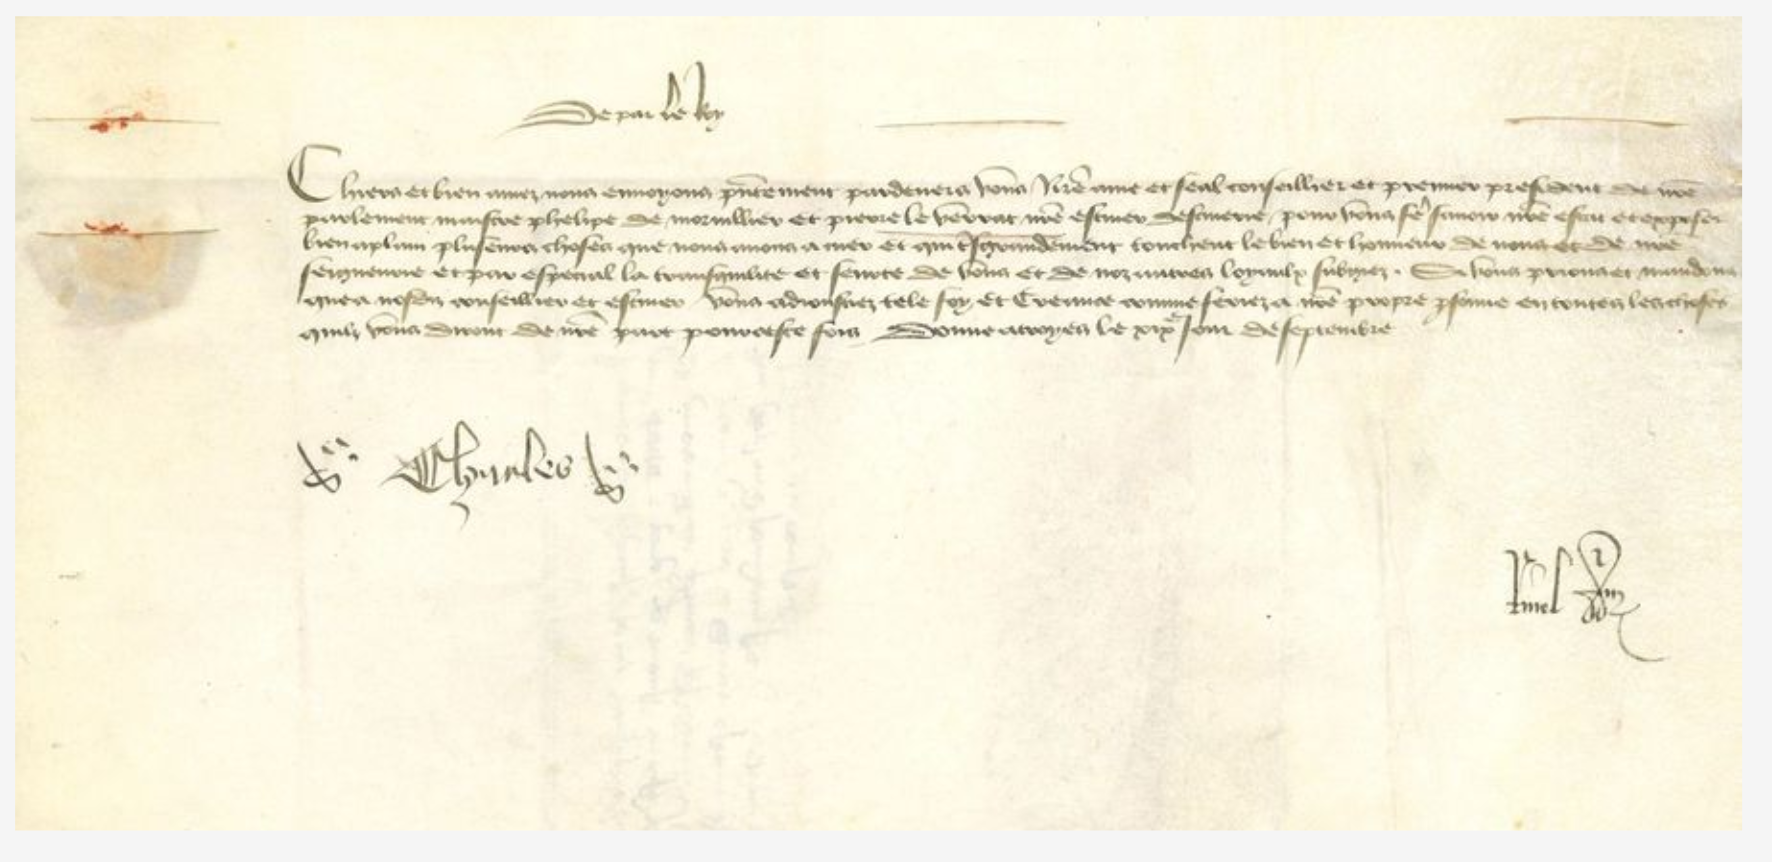 De par le Roy
Chiers et bien amez nous envoyons pñtement pardevers vous Nr̃e ame et feal conseillier et premier president de nr̃e
parlement maistre phelipe de morvillier et pierre le verrat nr̃e escuier descuierie / pour vous fẽ savoir nr̃e estat et exposer
bien aplain pluseurs choses que nous avons a cuer et qui tsgrandement touchent le bien et honneur de nous et de nr̃e
seigneurie et par especial la transquilite et seurte de vous et de noz autres loyaulx subgiez. Si vous prions et mandons
que a nosdiz conseillier et escuier vous adioustez tele foy et Creance comme feriez a nr̃e propre psonne en toutes les choses
quilz vous diront de nr̃e part pour ceste fois Donne a troyes le xix e Jour de septembre
Charles